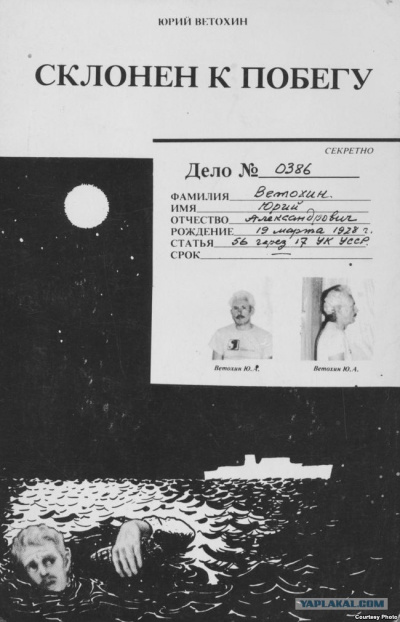 ЮРИЙ ВЕТОХИН
СКЛОНЕН К ПОБЕГУ
СЕКРЕТНО
Дело № 0386
ФАМИЛИЯ Ветохин.
ИМЯ Юрий
ОТЧЕСТВО Александрович
РОЖДЕНИЕ 19 марта 1928 г.
СТАТЬЯ 56 через 17 УК УССР.
СРОК —
Ветохин Ю.А. Ветохин Ю.А.
YAPLAKAL.COM
Courtesy Photo